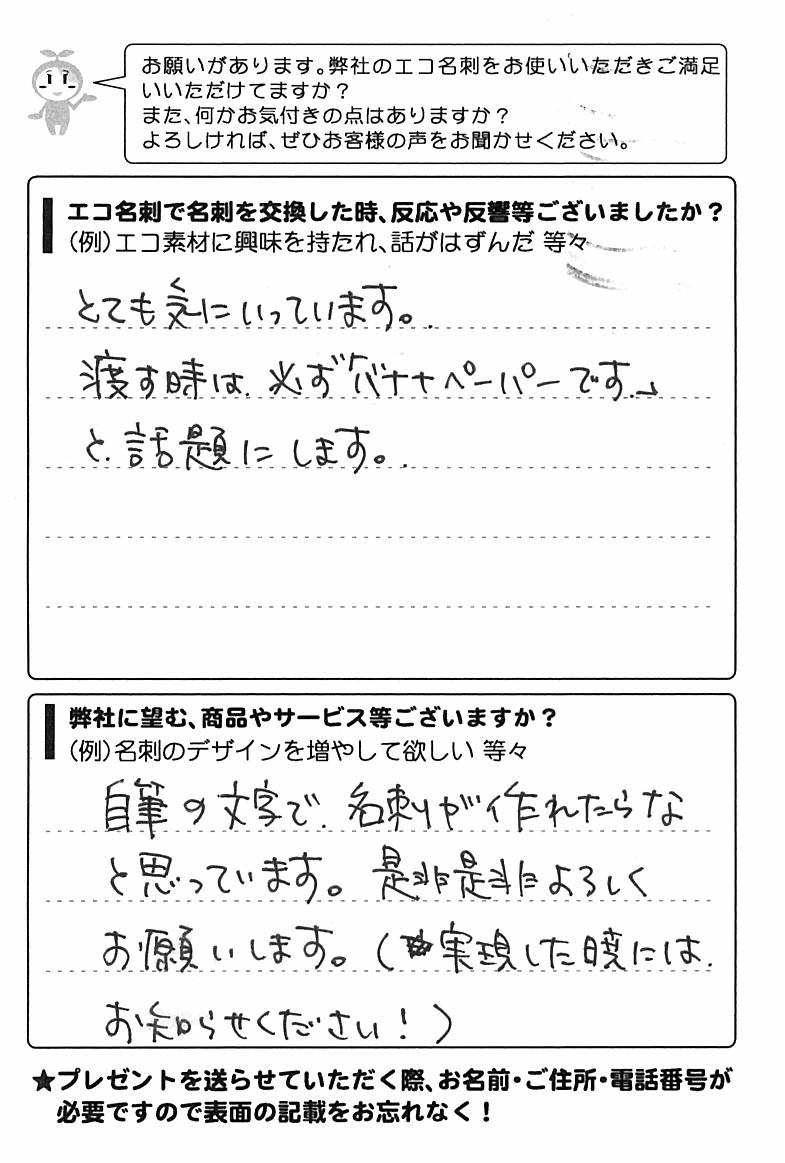 お願いがあります。弊社のエコ名刺をお使いいただきご満足
いいただけてますか？
また、何かお気付きの点はありますか？
よろしければ、ぜひお客様の声をお聞かせください。
エコ名刺で名刺を交換した時、反応や反響等ございましたか？
（例）エコ素材に興味を持たれ、話がはずんだ 等々
とても気にいっています。
渡す時は、必ず「バナナペーパーです。」
と、話題にします。
弊社に望む、商品やサービス等ございますか？
（例）名刺のデザインを増やして欲しい 等々
自筆の文字で、名刺が作れたらな
と思っています。是非是非よろしく
お願いします。（実現した暁には、
お知らせください！）
★プレゼントを送らせていただく際、お名前・ご住所・電話番号が
必要ですので表面の記載をお忘れなく！